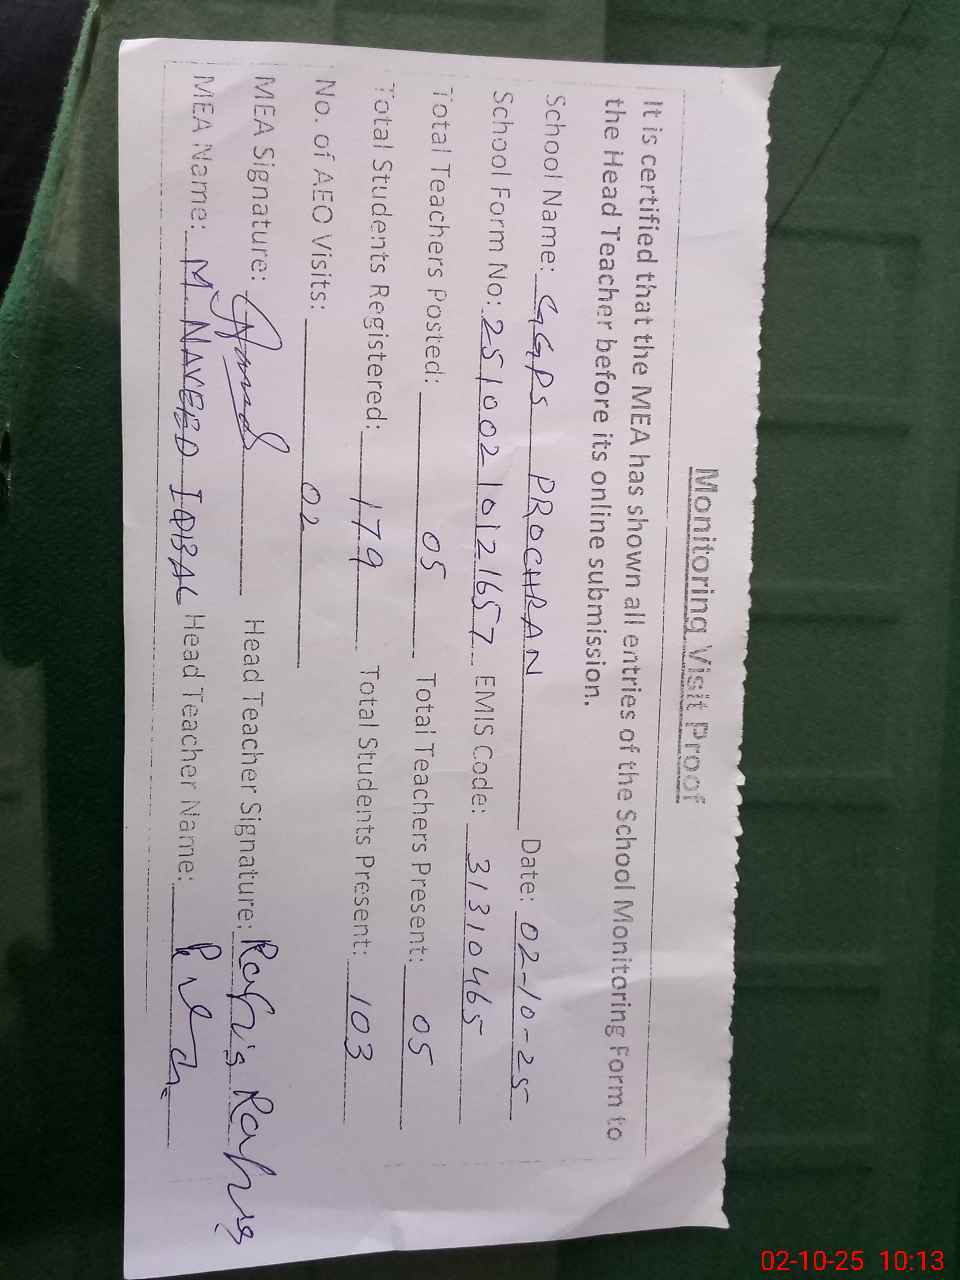 Monitoring Visit Proof
It is certified that the MEA has shown all entries of the School Monitoring Form to
the Head Teacher before its online submission.
School Name: GGPS PROCHRAN Date: 02-10-25
School Form No: 2510021012657 EMIS Code: 31310465
Total Teachers Posted: 05 Total Teachers Present: 05
Total Students Registered: 179 Total Students Present: 103
No. of AEO Visits: 02
MEA Signature: Head Teacher Signature:
MEA Name: M. NAVEED IQBAL Head Teacher Name:
02-10-25 10:13